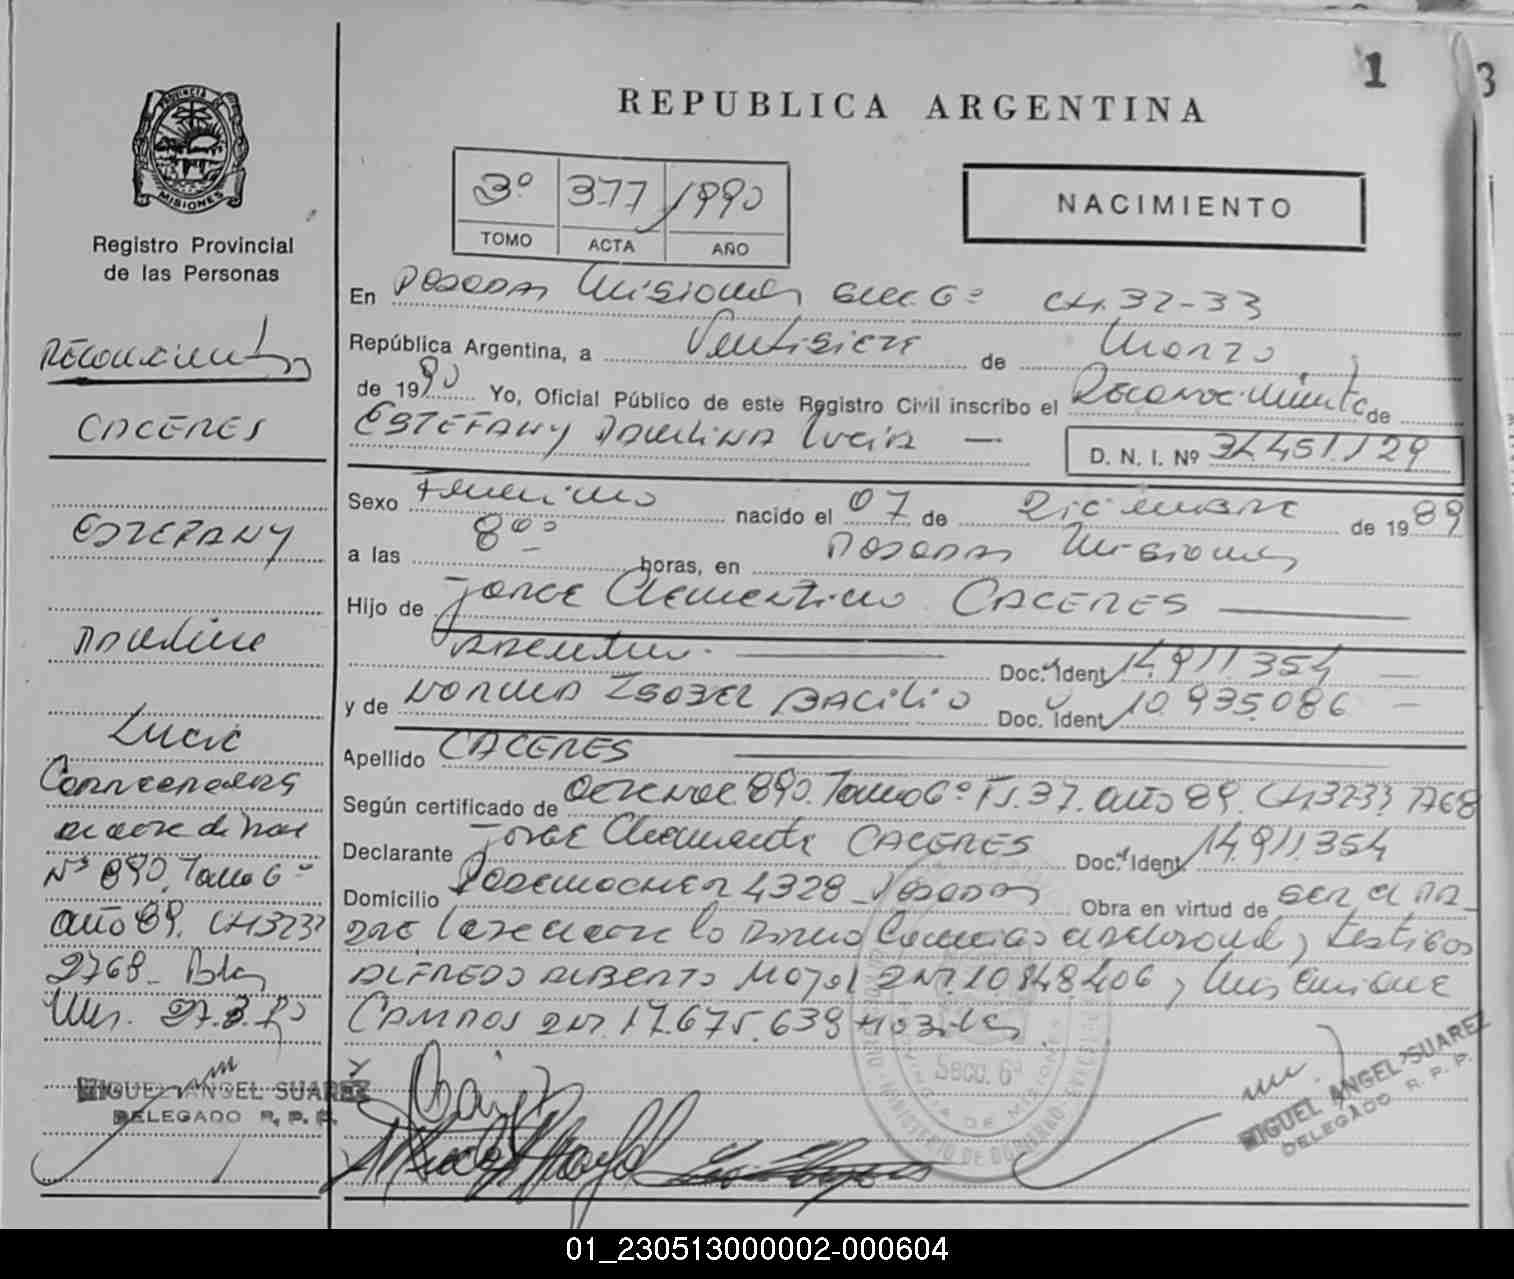 1
3
REPUBLICA ARGENTINA
PROVINCIA DE
MISIONES
Registro Provincial
de las Personas
3º 377 1990
TOMO ACTA AÑO
NACIMIENTO
En Posadas Misiones Secc. 6º CH. 32-33
República Argentina, a Ventisiete de Marzo
de 1990 Yo, Oficial Público de este Registro Civil inscribo el Reconocimiento de
ESTEFANY PAULINA Lucia —
D. N. I. Nº 34.451.129
Sexo Femenino nacido el 07 de Diciembre de 1989
a las 8ºº horas, en Posadas Misiones
Hijo de Jorge Clementino CACERES
Argentino. Doc. Ident 14.911.354 —
y de NORMA ISABEL BACILIO Doc. Ident 10.935.086 —
Apellido CACERES
Según certificado de 890. Tomo 6º Fs. 37. año 89. CH3233 2768
Declarante Jorge Clemente CACERES Doc. Ident 14.911.354
Domicilio 4328 - Posadas Obra en virtud de ser el PA-
DRE testigos
ALFREDO ALBERTO 10.848.406, Luis Enrique
CAMPOS DNI. 17.675.639
Reconocimiento
CACERES
ESTEFANY
Pauline
Lucie
Corresponde
Nº 890. Tomo 6º
año 89. CH3233
2768- Pdas
Mnes. 27.3.90
MIGUEL ANGEL SUAREZ
DELEGADO R. P. P.
Secc. 6ª
PROVINCIA DE MISIONES
MINISTERIO DE GOBIERNO
MIGUEL ANGEL SUAREZ
DELEGADO R. P. P.
01_230513000002-000604